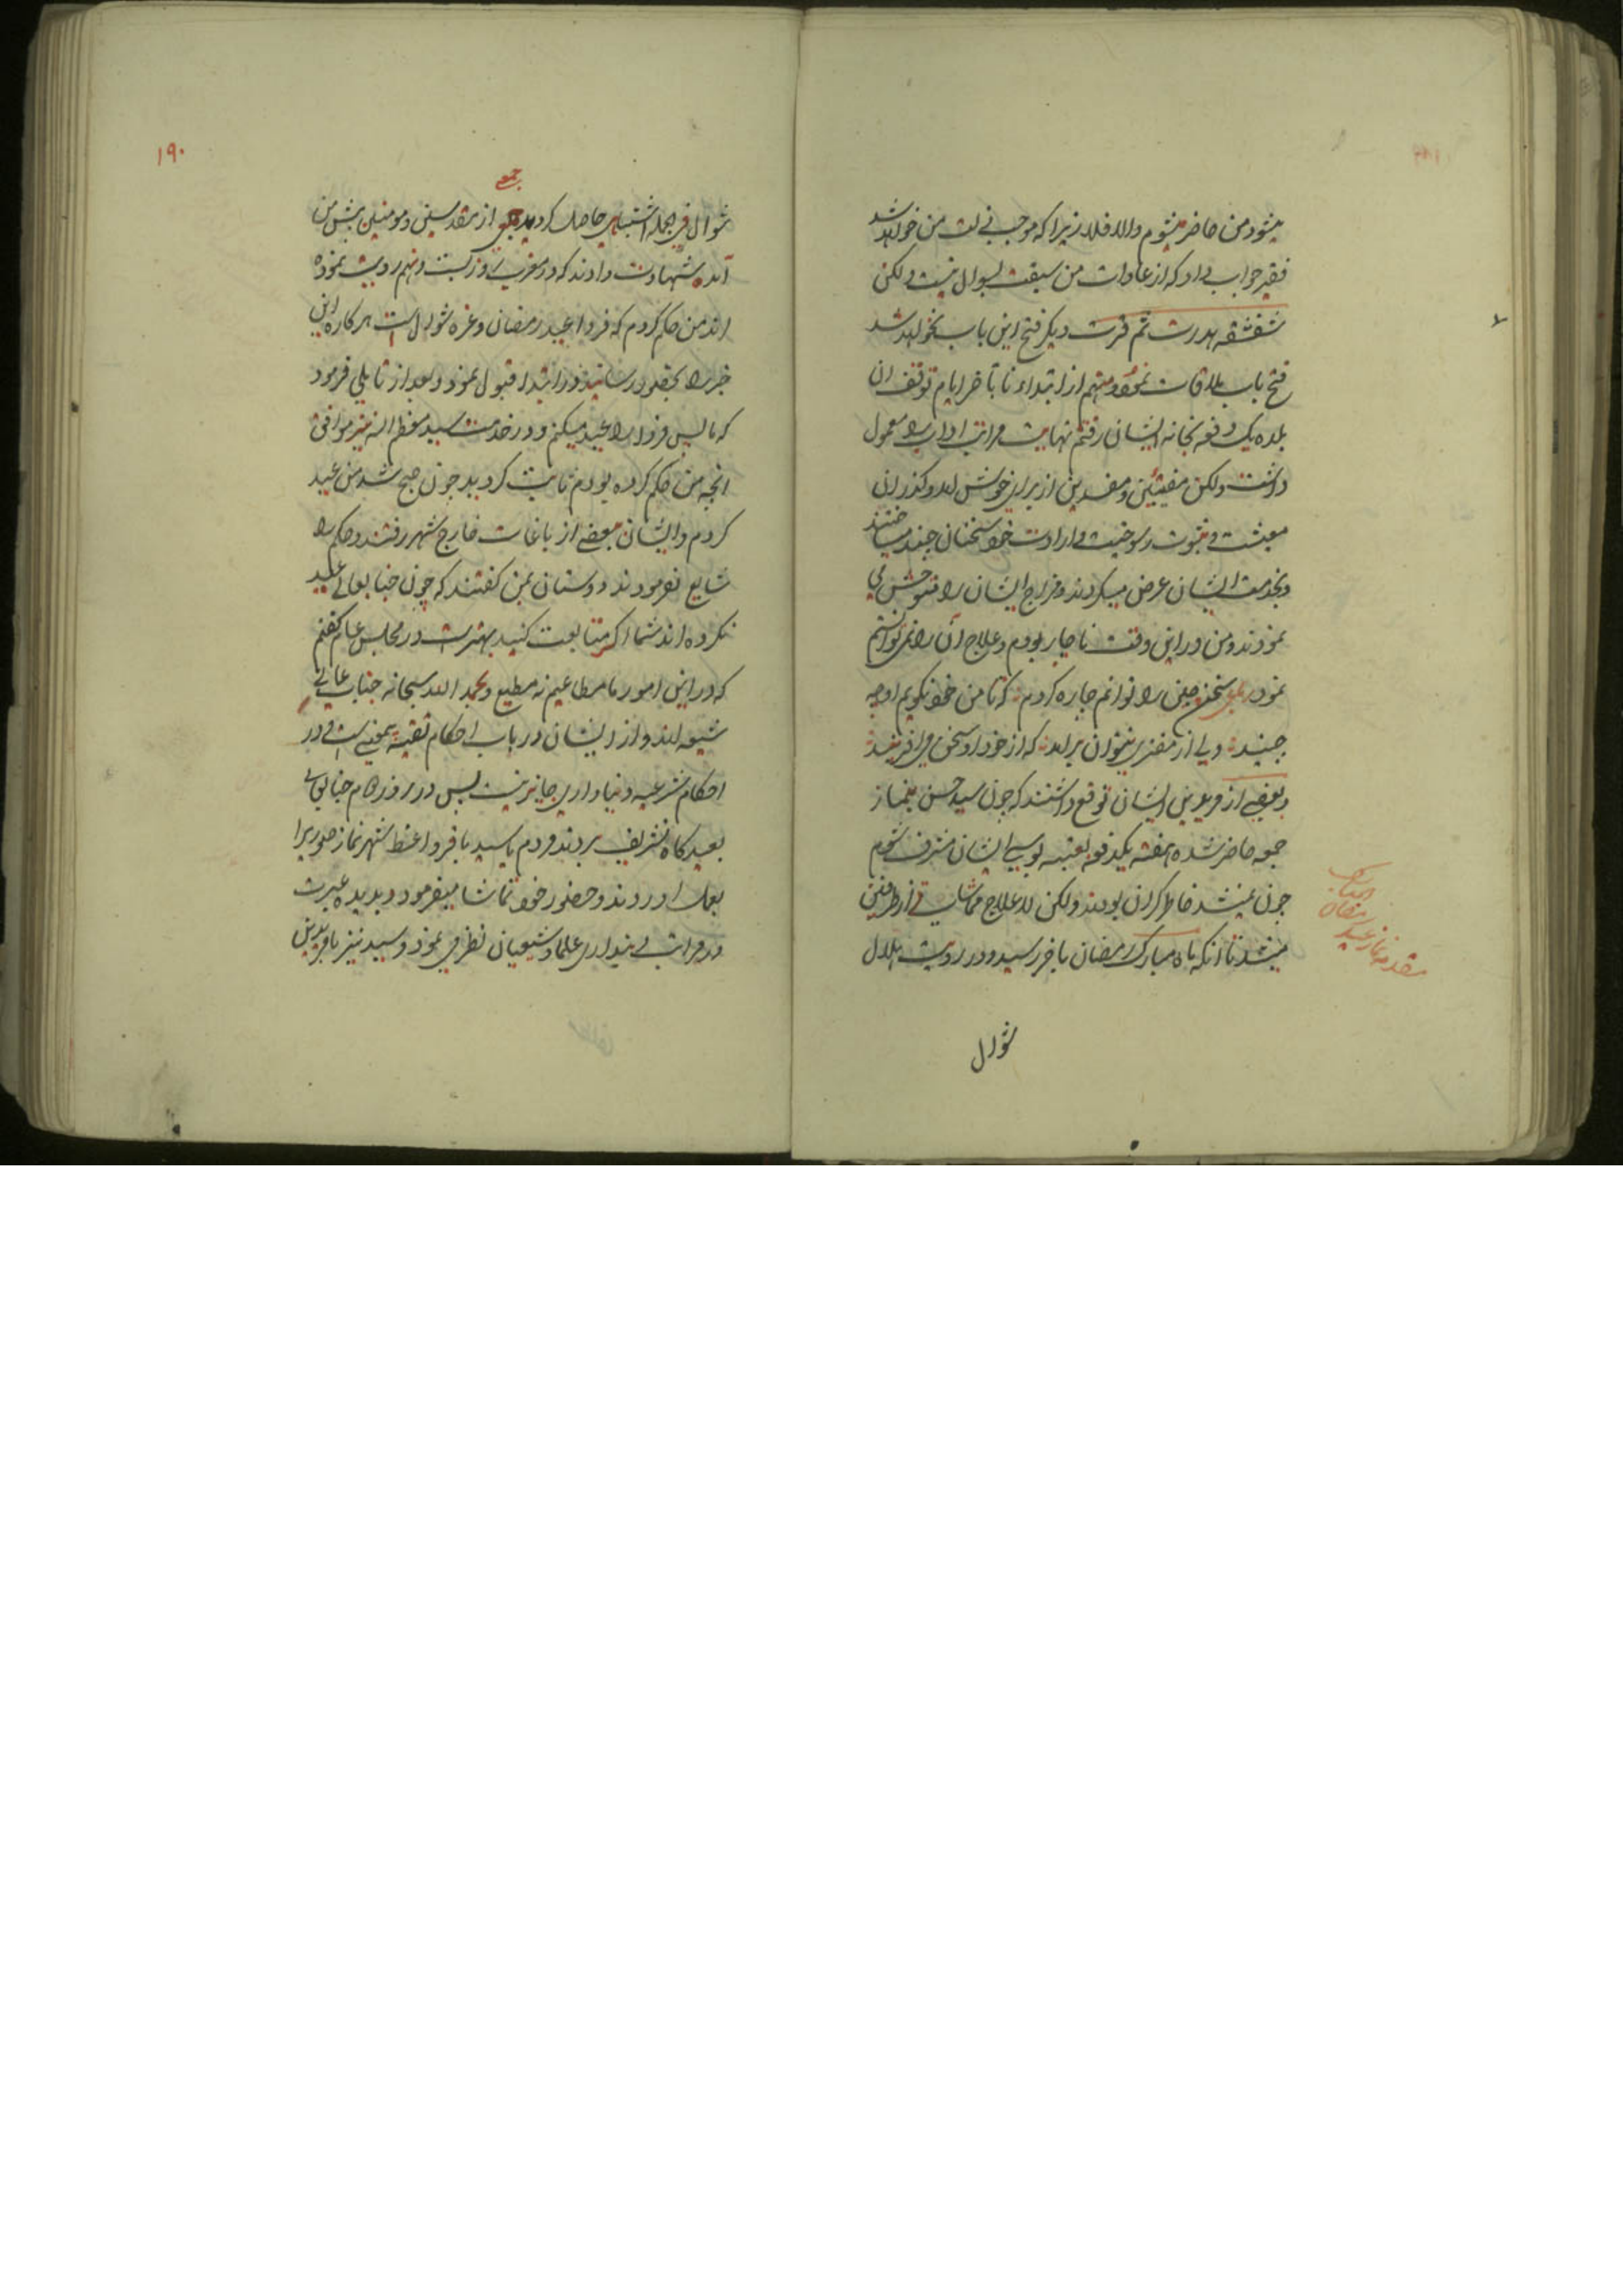 میشود من حاضر میشوم والا فلا زیرا که موجب خفت من خواهد شد
فقیر جواب داد که از عادات من سبقت بسوال نیست ولکن
شقشقه هدرت ثم قرت دیگر فتح این باب نخواهد شد
فتح باب ملاقات نموده منهم از ابتداء تا بآخر ایام توقف ان
بلده یک دفعه بخانه ایشان رفتم نهایت مراتب اداب را معمول
داشت ولکن مفتنین و مفسدین از برای خوش امد و گذران
معیشت و ثبوت رسوخیت و ارادت خود سخنان چند میساختند
وبخدمت ایشان عرض میکردند و مزاج ایشان را متوحش می
نمودند و من در این وقت ناچار بودم و علاج آن را نمی توانستم
نمود بلی سخن چین را توانم چاره کردن که تا من خود نگویم او چه
چیند ولی از مفتری نتوان برامد که از خود او سخن می آفریند
و بعضی از مریدین ایشان توقع داشتند که چون سید حسن بنماز
جمعه حاضر شده هفته یکدفعه بعتبه بوسی ایشان مشرف شوم
چون نمیشد خاطر گران بودند ولکن لا علاج مماشات از طرفین
میشد تا آنکه ماه مبارک رمضان باخر رسید و در رویت هلال
مقدمه نماز عید رمضان المبارک
شوال
۱۹۰
جمعی
شوال فی الجمله اشتباهی حاصل گردید از مقدسین و مومنین پیش من
آمده شهادت دادند که در مغرب روز بیست و نهم رویت نموده
اند من حکم کردم که فردا عید رمضان و غره شوال است هرکاره این
خبر را بحضور رسانید در ابتدا قبول نمود و بعد از تاملی فرمود
که ما پس فردا را عید میکنم و در خدمت سید معظم الیه نیز موافق
انچه من حکم کرده بودم ثابت گردید چون صبح شد من عید
کردم و ایشان ببعضی از باغات خارج شهر رفتند و حکم را
شایع نفرمودند دوستان بمن گفتند که چون جنابعالی عید
نکرده اند شما اگر متابعت کنید بهتر است در مجلس عام گفتم
که در این امور ما مطاعیم نه مطیع و بحمد الله سبحانه جناب عالی
شیعه اند و از ایشان در باب احکام تقیه نیست و در
احکام شرعیه دنیاداری جایز نیست پس در روز دوم جنابعالی
بعیدگاه تشریف بردند و مردم با سید باقر واعظ شهر نماز صوری را
بعمل اوردند و حضور خود تماشا میفرمود و بدیده عبرت
در مراتب دینداری علما و شیعیان نظر می نمود و سید نیز با مریدین